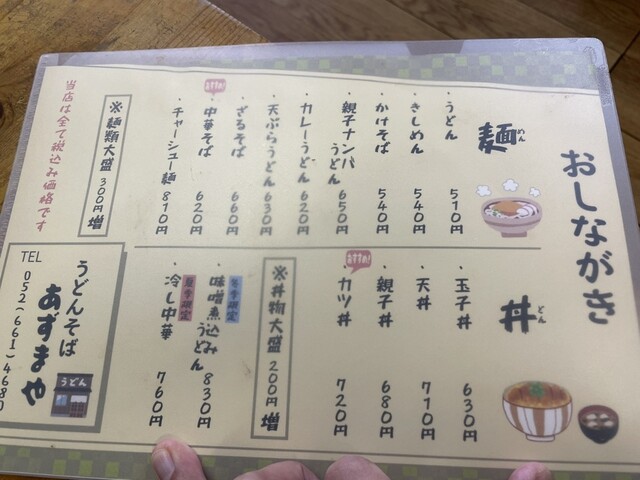 おしながき
麺
めん
・うどん 510円
・きしめん 540円
・かけそば 540円
・親子ナンバうどん 650円
・カレーうどん 620円
・天ぷらうどん 630円
・ざるそば 660円
おすすめ!
・中華そば 620円
・チャーシュー麺 810円
※麺類大盛 300円増
当店は全て税込み価格です
丼
どん
・玉子丼 630円
・天丼 710円
・親子丼 680円
おすすめ!
・カツ丼 720円
※丼物大盛 200円増
・味噌煮込みうどん 冬季限定 830円
・冷し中華 夏季限定 760円
うどんそば
あずまや
うどん
TEL
052(661)4680